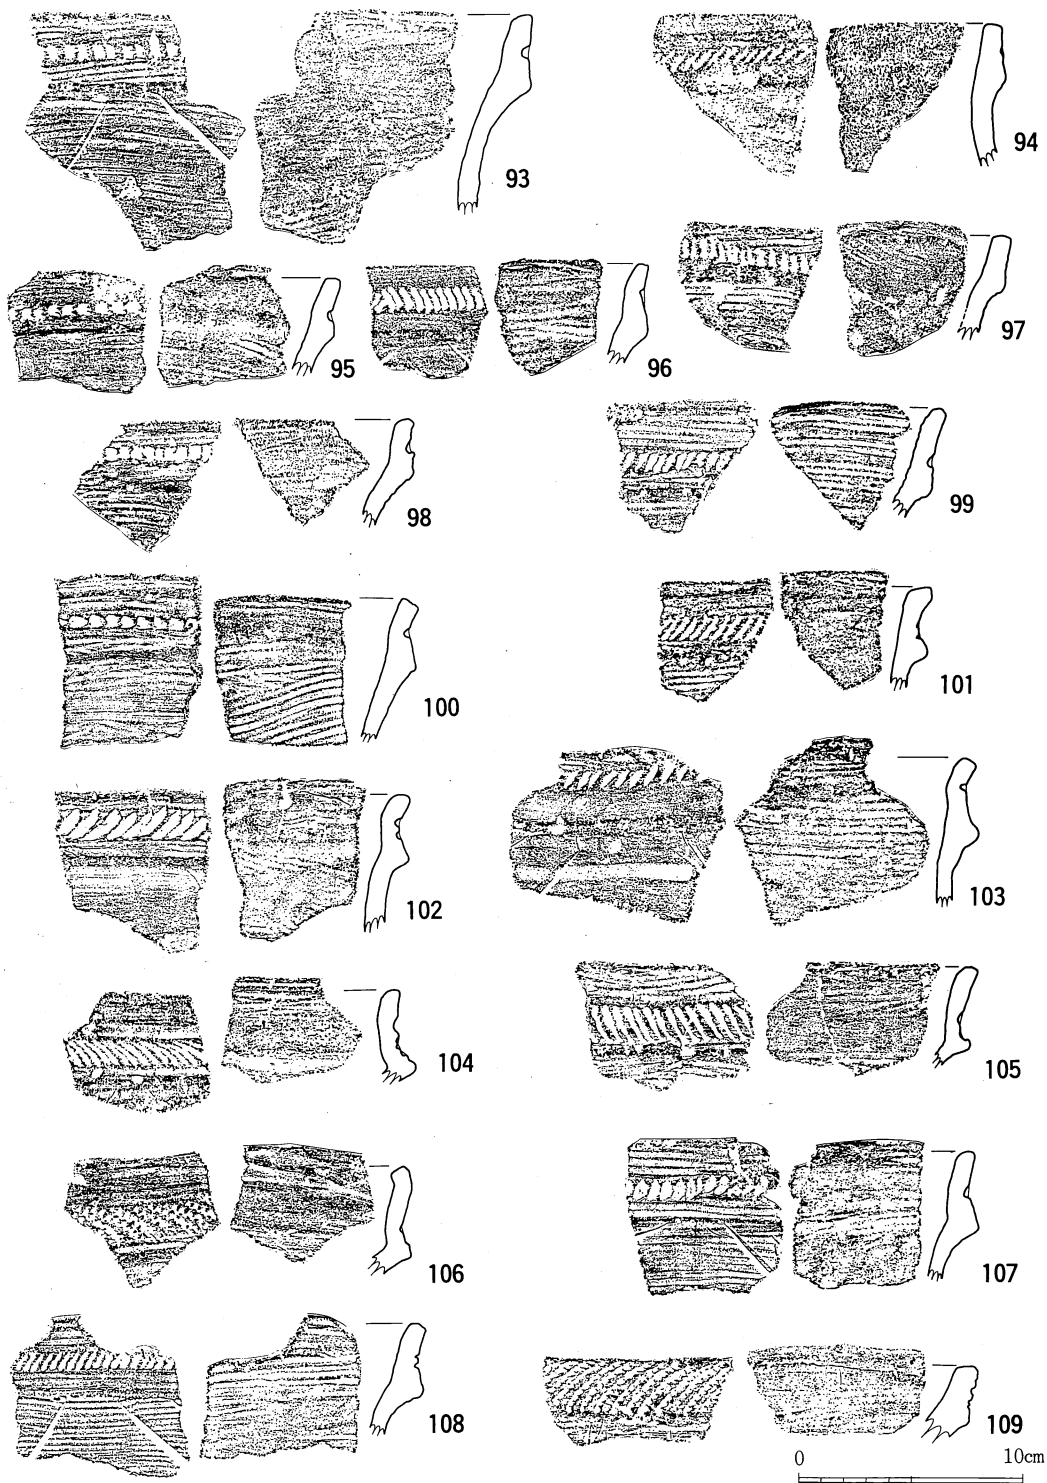 93
94
95
96
97
98
99
100
101
102
103
104
105
106
107
108
109
0 10cm